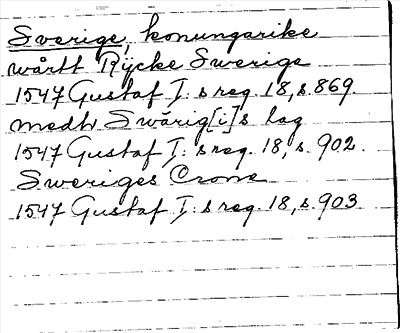 Sverige, konungarike
wårtt Rijcke Swerige
1547 Gustaf I:s reg. 18, s. 869.
medh Swärig[i]s lag
1547 Gustaf I:s reg. 18, s. 902.
Sweriges Crone
1547 Gustaf I:s reg. 18, s. 903